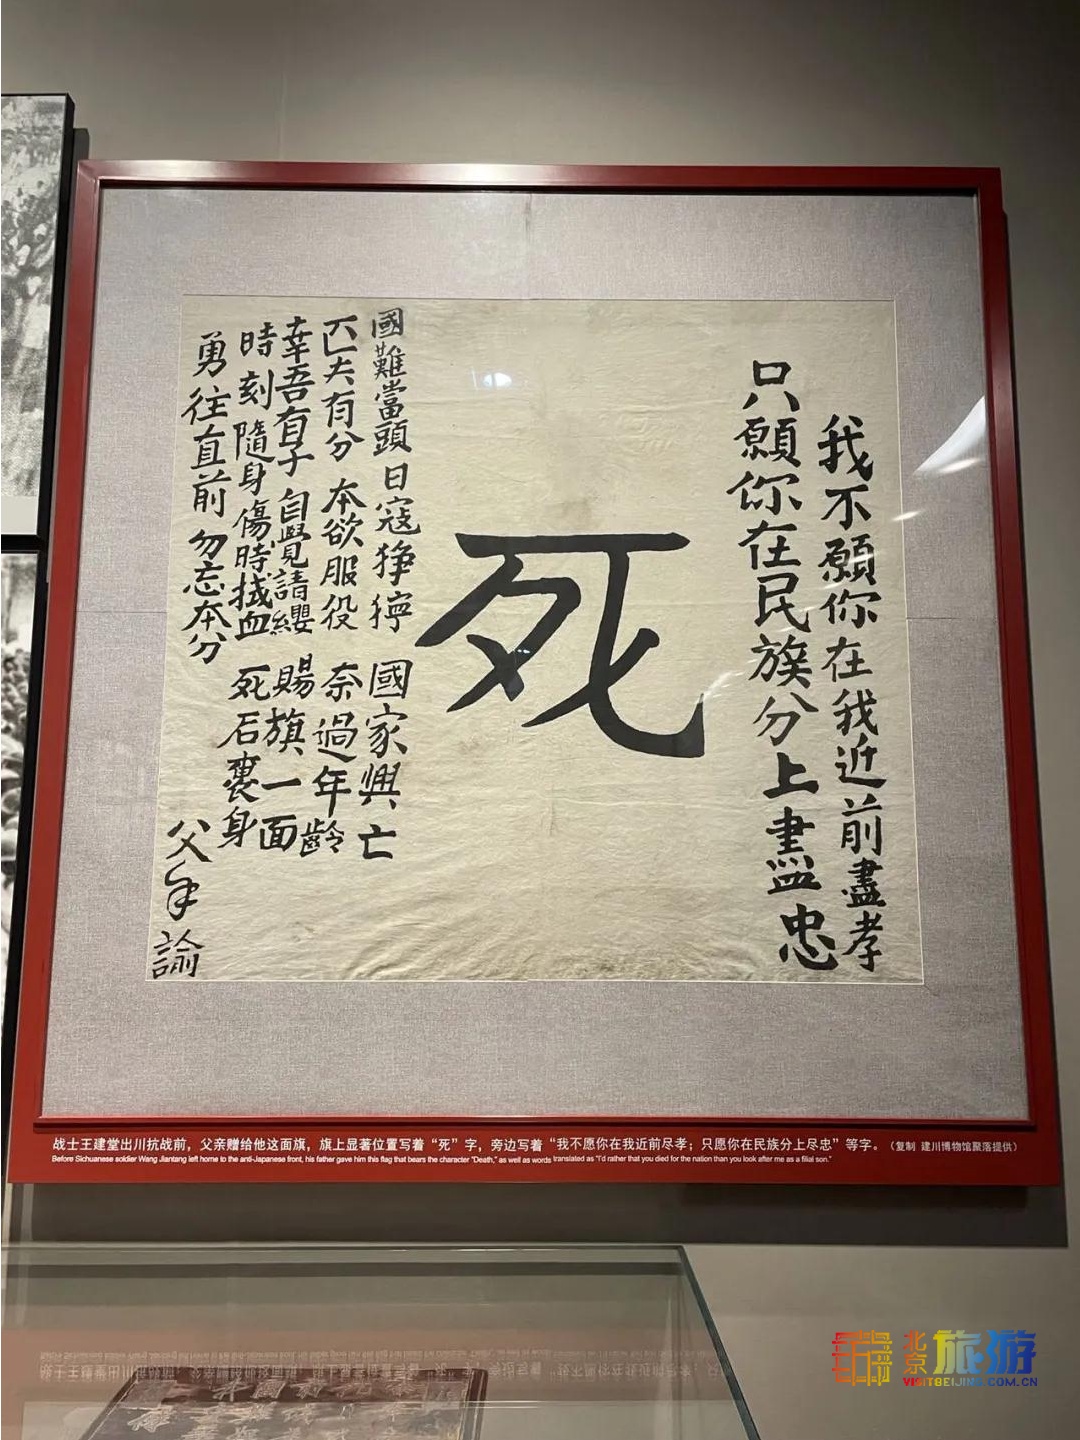 我不願你在我近前盡孝
只願你在民族分上盡忠
死
國難當頭日寇猙獰 國家興亡
匹夫有分 本欲服役 奈過年齡
幸吾有子 自覺請纓 賜旗一面
時刻隨身傷時拭血 死後裹身
勇往直前 勿忘本分
父手諭
战士王建堂出川抗战前，父亲赠给他这面旗，旗上显著位置写着“死”字，旁边写着“我不愿你在我近前尽孝；只愿你在民族分上尽忠”等字。（复制 建川博物馆聚落提供）
Before Sichuanese soldier Wang Jiantang left home to the anti-Japanese front, his father gave him this flag that bears the character "Death," as well as words translated as "I'd rather that you died for the nation than you look after me as a filial son."
北京旅游
VISITBEIJING.COM.CN